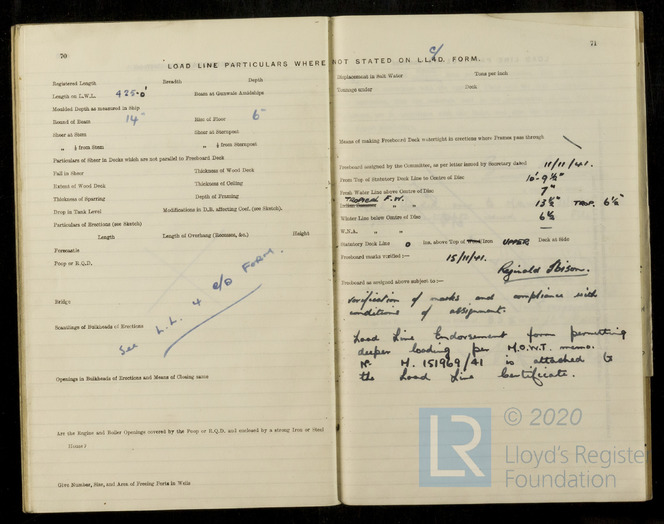 70
LOAD LINE PARTICULARS WHERE NOT STATED ON LL4D. FORM.
c/o
Registered Length Breadth Depth
Length on L.W.L. 425·0' Beam at Gunwale Amidships
Moulded Depth as measured in Ship
Round of Beam 14" Rise of Floor 6"
Sheer at Stem Sheer at Sternpost
„ ⅛ from Stem „ ⅛ from Sternpost
Particulars of Sheer in Decks which are not parallel to Freeboard Deck
Fall in Sheer Thickness of Wood Deck
Extent of Wood Deck Thickness of Ceiling
Thickness of Sparring Depth of Framing
Drop in Tank Level Modifications in D.B. affecting Coef. (see Sketch).
Particulars of Erections (see Sketch)
Length Length of Overhang (Recesses, &c.) Height
Forecastle
Poop or R.Q.D.
Bridge
See L.L. 4 c/o FORM.
Scantlings of Bulkheads of Erections
Openings in Bulkheads of Erections and Means of Closing same
Are the Engine and Boiler Openings covered by the Poop or R.Q.D. and enclosed by a strong Iron or Steel
House?
Give Number, Size, and Area of Freeing Ports in Wells
71
Displacement in Salt Water Tons per inch
Tonnage under Deck
Means of making Freeboard Deck watertight in erections where Frames pass through
Freeboard assigned by the Committee, as per letter issued by Secretary dated 11/11/41.
From Top of Statutory Deck Line to Centre of Disc 10'-9½"
Fresh Water Line above Centre of Disc 7"
TROPICAL F.W. „ „ 13½" TROP. 6½"
Winter Line below Centre of Disc 6½
W.N.A. „ „ —
Statutory Deck Line 0 ins. above Top of Wood Iron UPPER Deck at Side
Freeboard marks verified:— 15/11/41.
Reginald Ibison.
Freeboard as assigned above subject to:—
verification of marks and compliance with
conditions of assignment.
Load Line Endorsement form permitting
deeper loading per M.O.W.T. memo.
Nº M. 151969/41 is attached to
the Load Line Certificate.
© 2020
LR
Lloyd's Register
Foundation